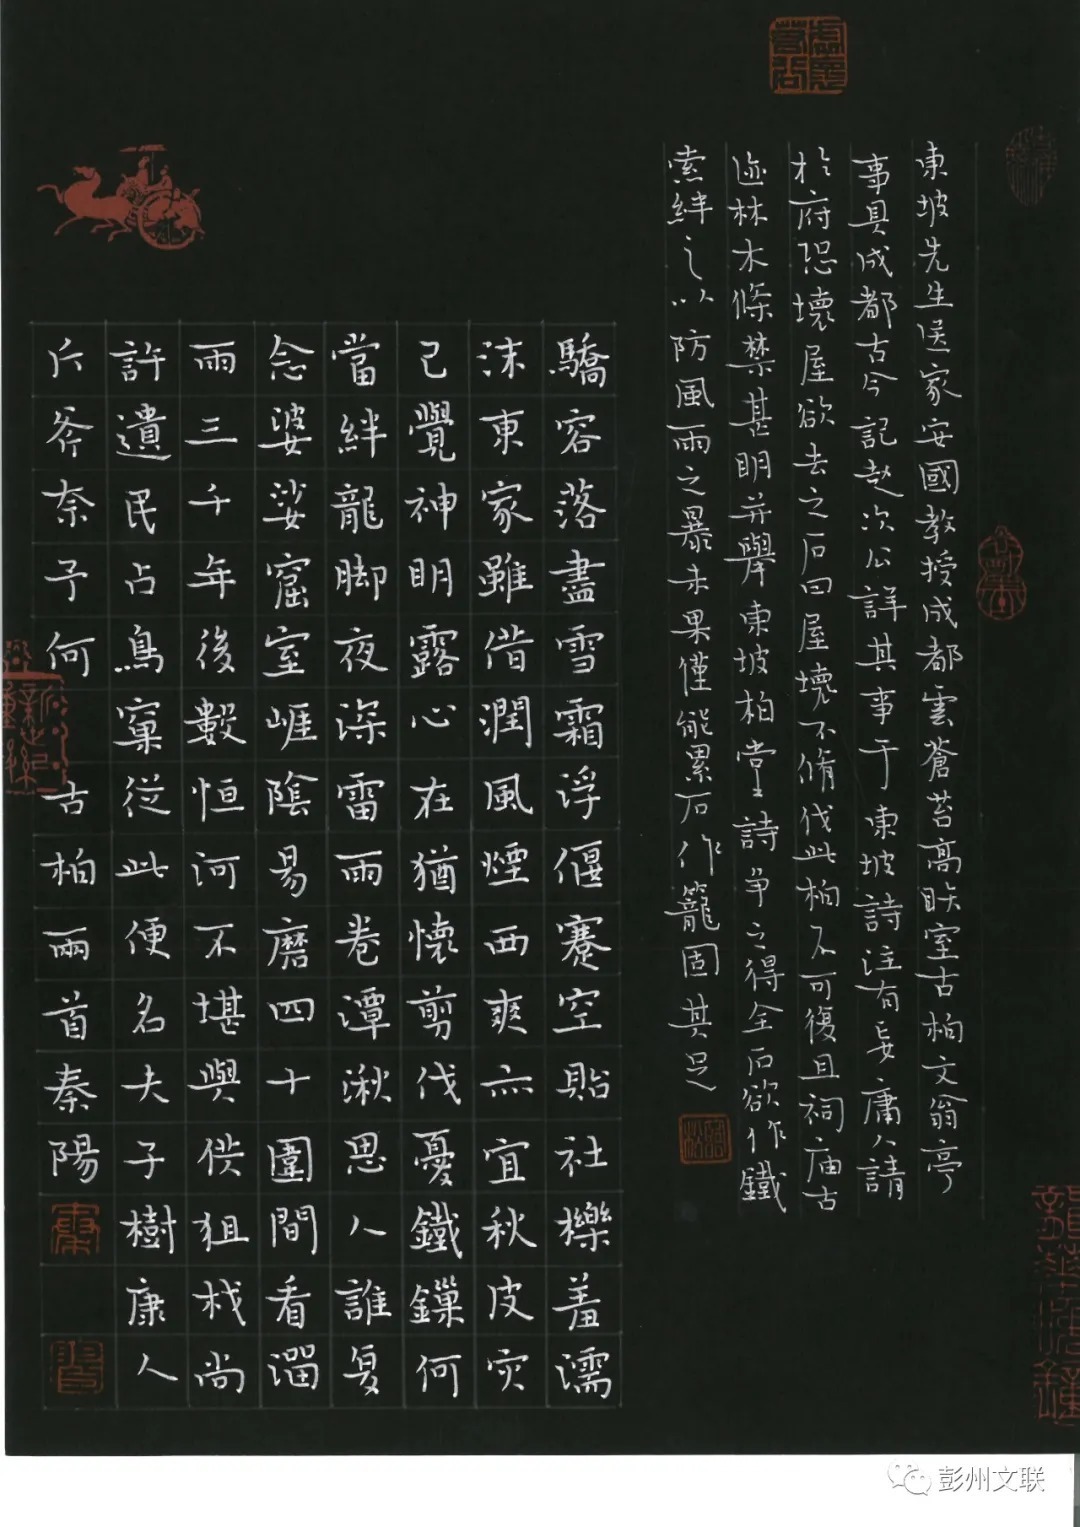 東坡先生送家安國教授成都雲蒼苔高朕室古柏文翁亭
事具成都古今記趙次公詳其事于東坡詩注有妄庸人請
於府恐壞屋欲去之石曰屋壞不脩伐此柏不可復且祠庙古
迹林木條禁甚明并舉東坡柏堂詩爭之得全石欲作鐵
索絆之以防風雨之暴未果僅能累石作籠固其足
驕容落盡雪霜浮偃蹇空貽社櫟羞濡
沫東家雖借潤風煙西爽亦宜秋皮灾
已覺神明露心在猶懷剪伐憂鐵鏁何
當絆龍脚夜深雷雨卷潭湫思人誰复
念婆娑窟室崕陰易磨四十圍間看溜
雨三千年後數恒河不堪與供狙杙尚
許遺民占鳥窠從此便名夫子樹康人
斤斧奈予何 古柏兩首秦陽
彭州文联